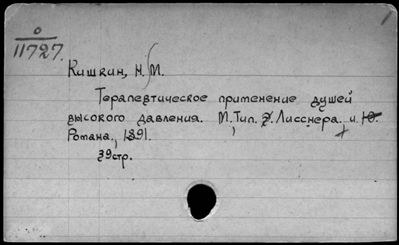 0
11727.
Кишкин, Н. М.
Терапевтическое применение душей
высокого давления. М., Тип. Э. Лисснера. и. Ю.
Романа, 1891.
39стр.